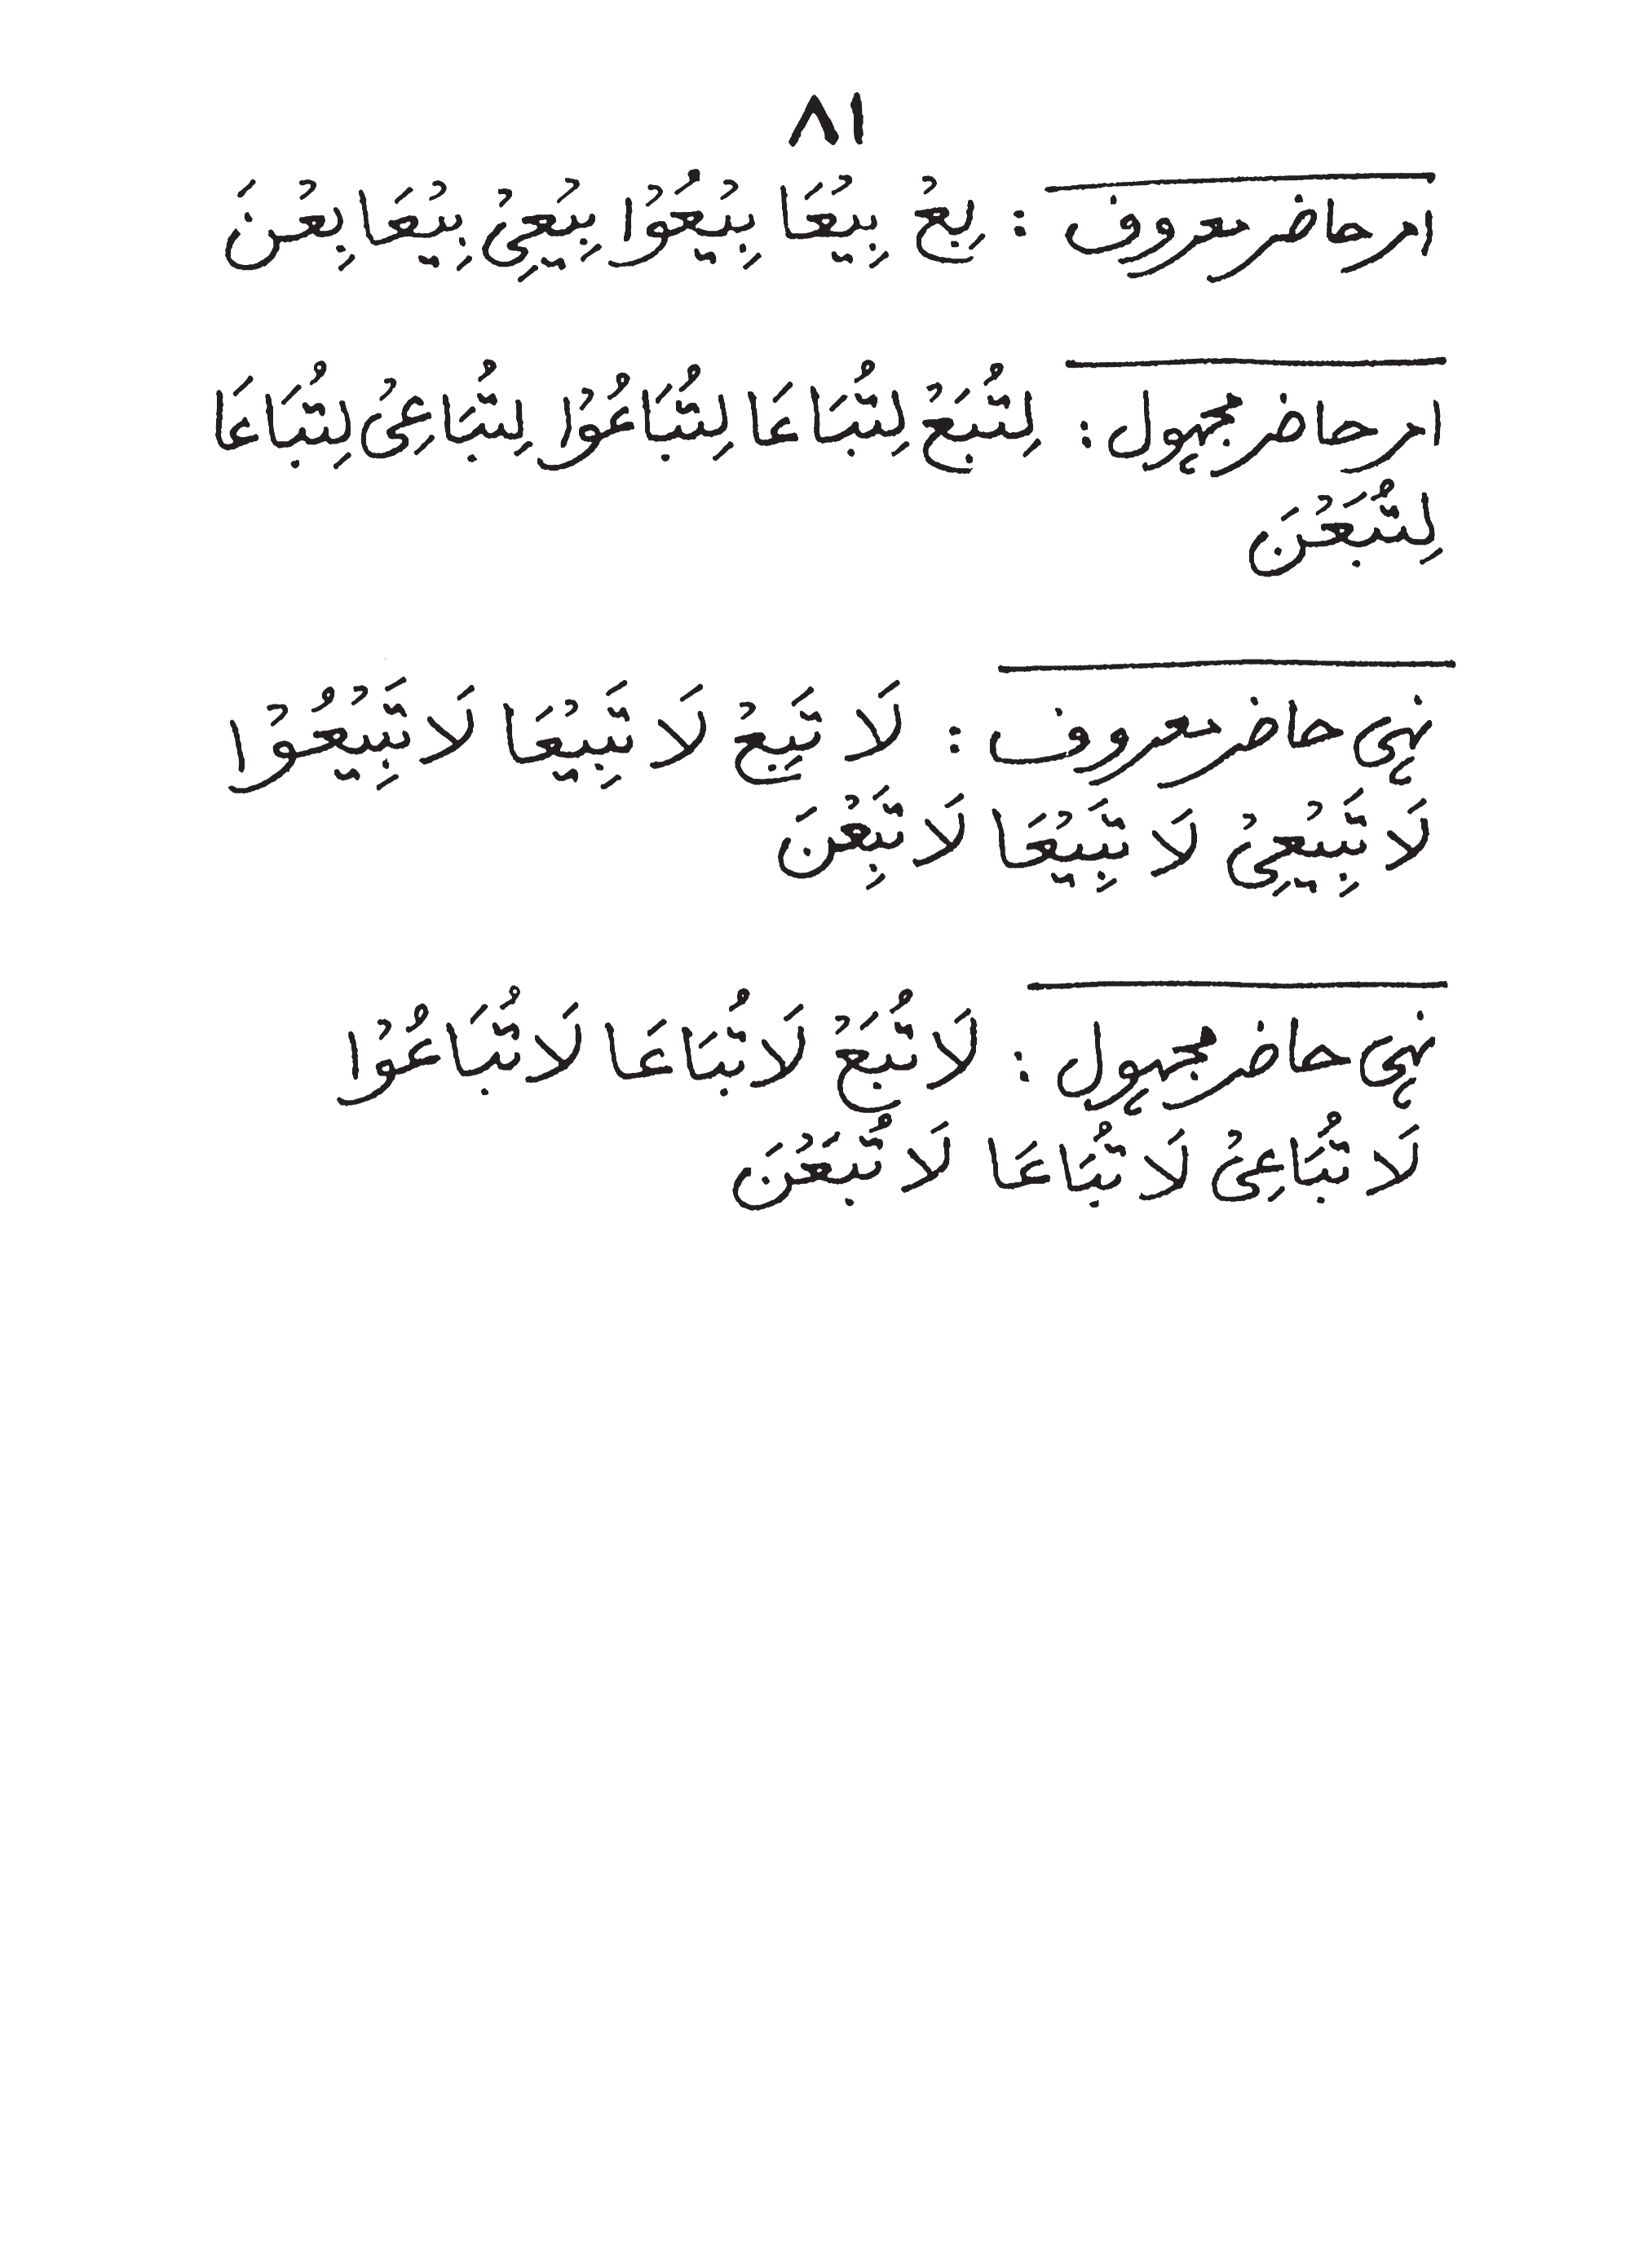 ٨١
امر حاضر معروف : بِعْ بِيْعَا بِيْعُوْا بِيْعِىْ بِيْعَا بِعْنَ
امر حاضر مجہول : لِتُبَعْ لِتُبَاعَا لِتُبَاعُوْا لِتُبَاعِىْ لِتُبَاعَا
لِتُبَعْنَ
نہی حاضر معروف : لَا تَبِعْ لَا تَبِيْعَا لَا تَبِيْعُوْا
لَا تَبِيْعِىْ لَا تَبِيْعَا لَا تَبِعْنَ
نہی حاضر مجہول : لَا تُبَعْ لَا تُبَاعَا لَا تُبَاعُوْا
لَا تُبَاعِىْ لَا تُبَاعَا لَا تُبَعْنَ